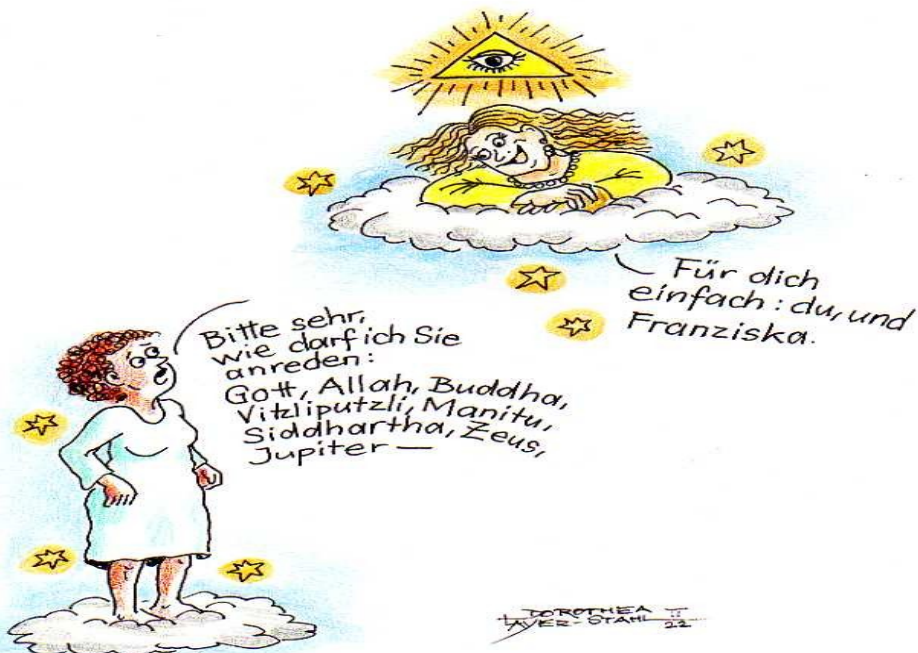 Bitte sehr,
wie darf ich Sie
anreden:
Gott, Allah, Buddha,
Vitzliputzli, Manitu,
Siddhartha, Zeus,
Jupiter —
Für dich
einfach: du, und
Franziska.
DOROTHEA II
-STAHL 22